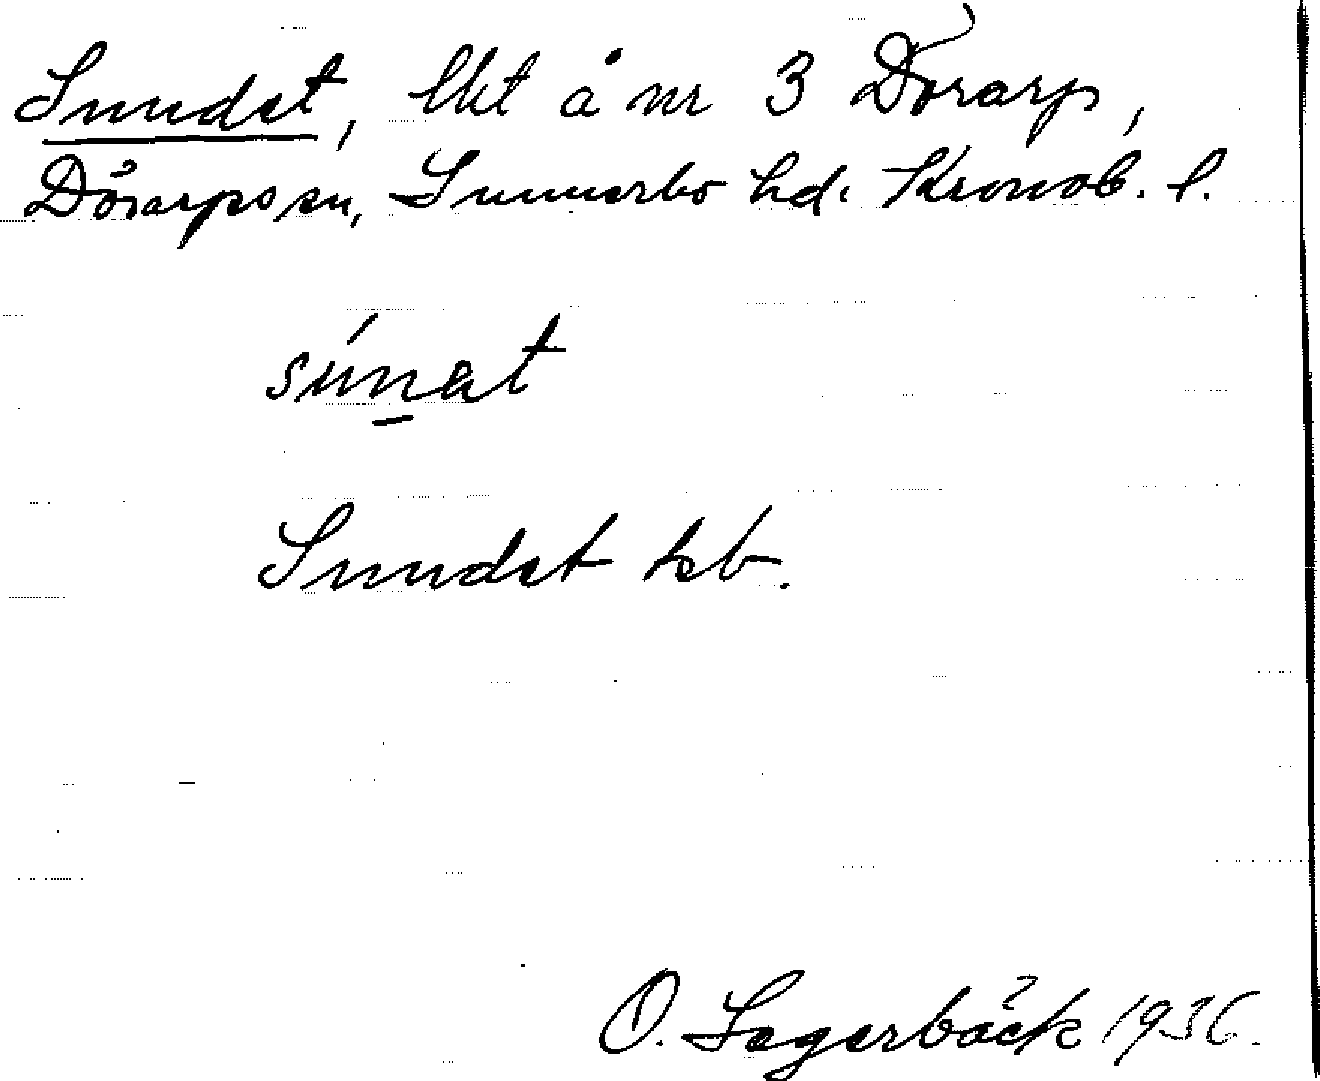 Sundet, lht å nr 3 Dörarp,
Dörarps sn, Sunnerbo hd. Kronob. l.
súnat
Sundet kb.
O. Lagerbäck 1936.